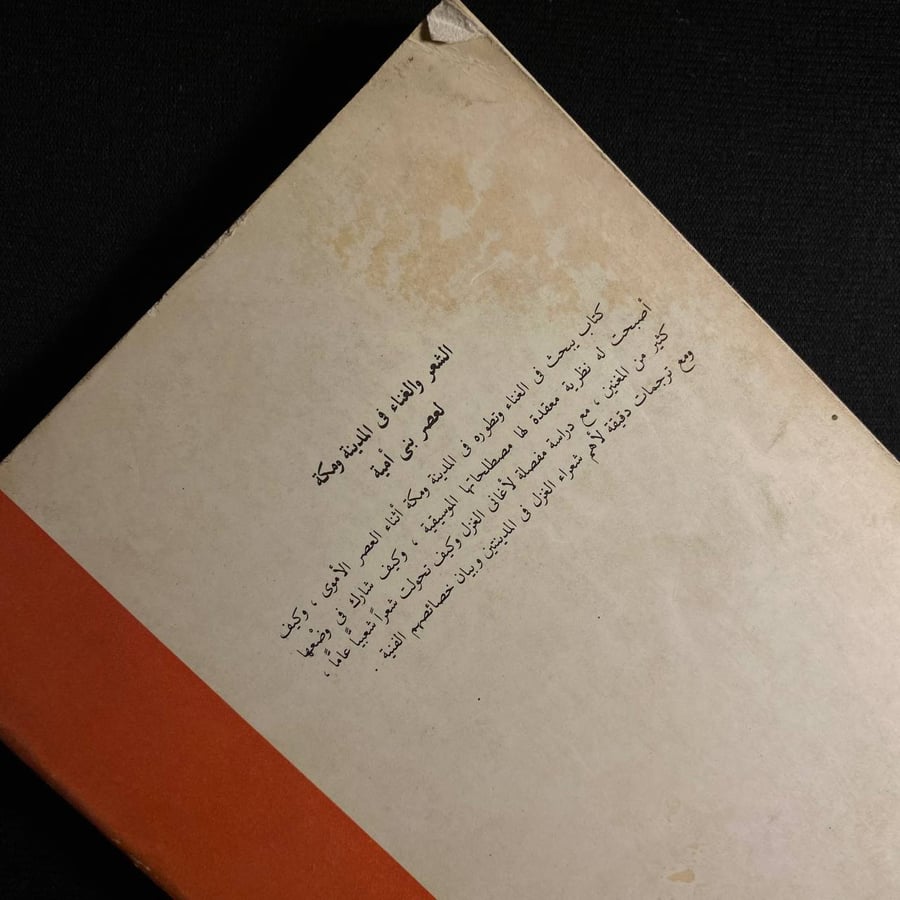 الشعر والغناء فى المدينة ومكة
لعصر بنى أمية
كتاب يبحث فى الغناء وتطوره فى المدينة ومكة أثناء العصر الأموى ، وكيف
أصبحت له نظرية معقدة لها مصطلحاتها الموسيقية ، وكيف شارك فى وضْعها
كثير من المغنين ، مع دراسة مفصلة لأغانى الغزل وكيف تحولت شعراً شعبيًّا عامًّا ،
ومع ترجمات دقيقة لأهم شعراء الغزل فى المدينتين وبيان خصائصهم الفنية .